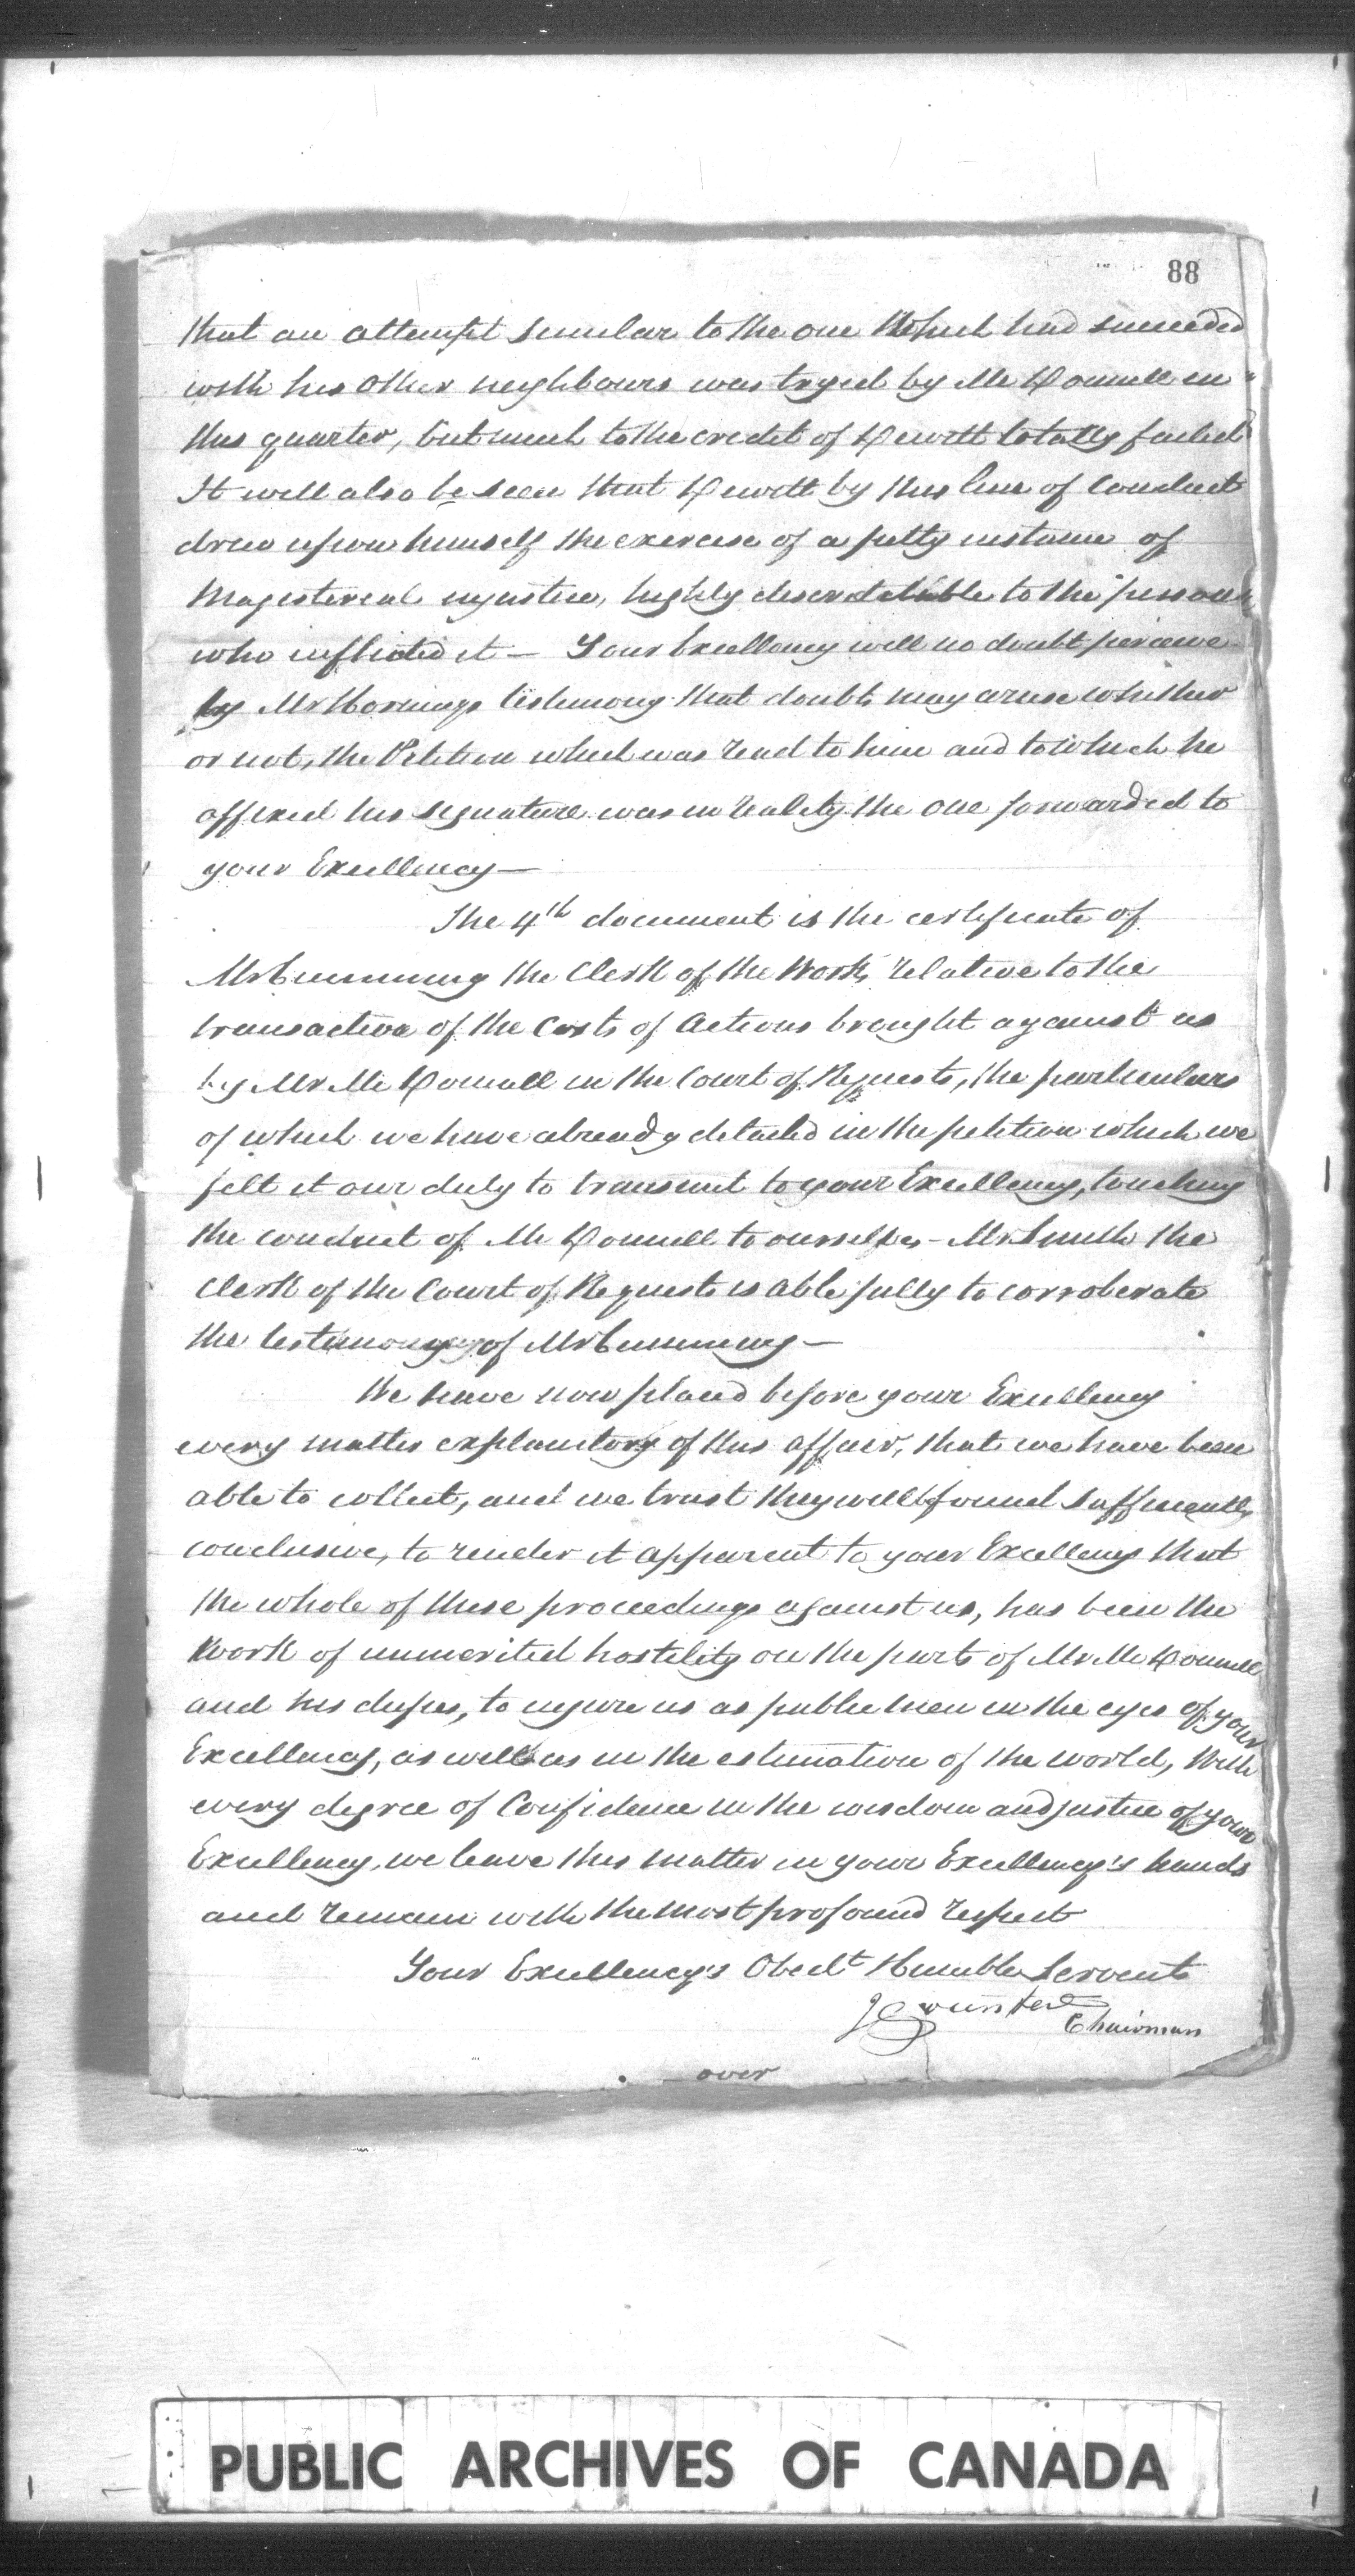 88
that an attempt similar to the one which had succeeded
with his other neighbours was tryed by Mc Donnell in
this quarter, but much to the credit of Dewitt totally failed
It will also be seen that Dewitt by this line of Conduct
drew upon himself the exercise of a petty instance of
Magisterial injustice, highly discreditable to the persons
who inflicted it — Your Excellency will no doubt perceive
by Mr Hornings testimony that doubts may arise whither
or not, the Petition which was read to him and to which he
affixed his signature was in reality the one forwarded to
your Excellency —
The 4th document is the certificate of
Mr Cumming the Clerk of the Work, relative to the
transaction of the Costs of Actions brought against us
by Mr Mc Donnell in the Court of Requests, the particulars
of which we have already detailed in the petition which we
felt it our duty to transmit to your Excellency, touching
the conduct of Mc Donnell to ourselves — Mr Smith the
Clerk of the Court of Requests is able fully to corroberate
the testimony of Mr Cumming —
We have now placed before your Excellency
every matter explanitory of this affair, that we have been
able to collect, and we trust they will found sufficiently
conclusive, to render it apparent to your Excellency that
the whole of these proceedings against us, has been the
Work of unmerited hostility on the part of Mr Mc Donnell
and his dupes, to injure us as public men in the eyes of your
Excellency, as well as in the estimation of the world, With
every degree of Confidence in the wisdom and justice of your
Excellency, we leave this matter in your Excellency's hands
and remain with the most profound respect
Your Excellency's Obedt Humble Servents
Chairman
over
PUBLIC ARCHIVES OF CANADA